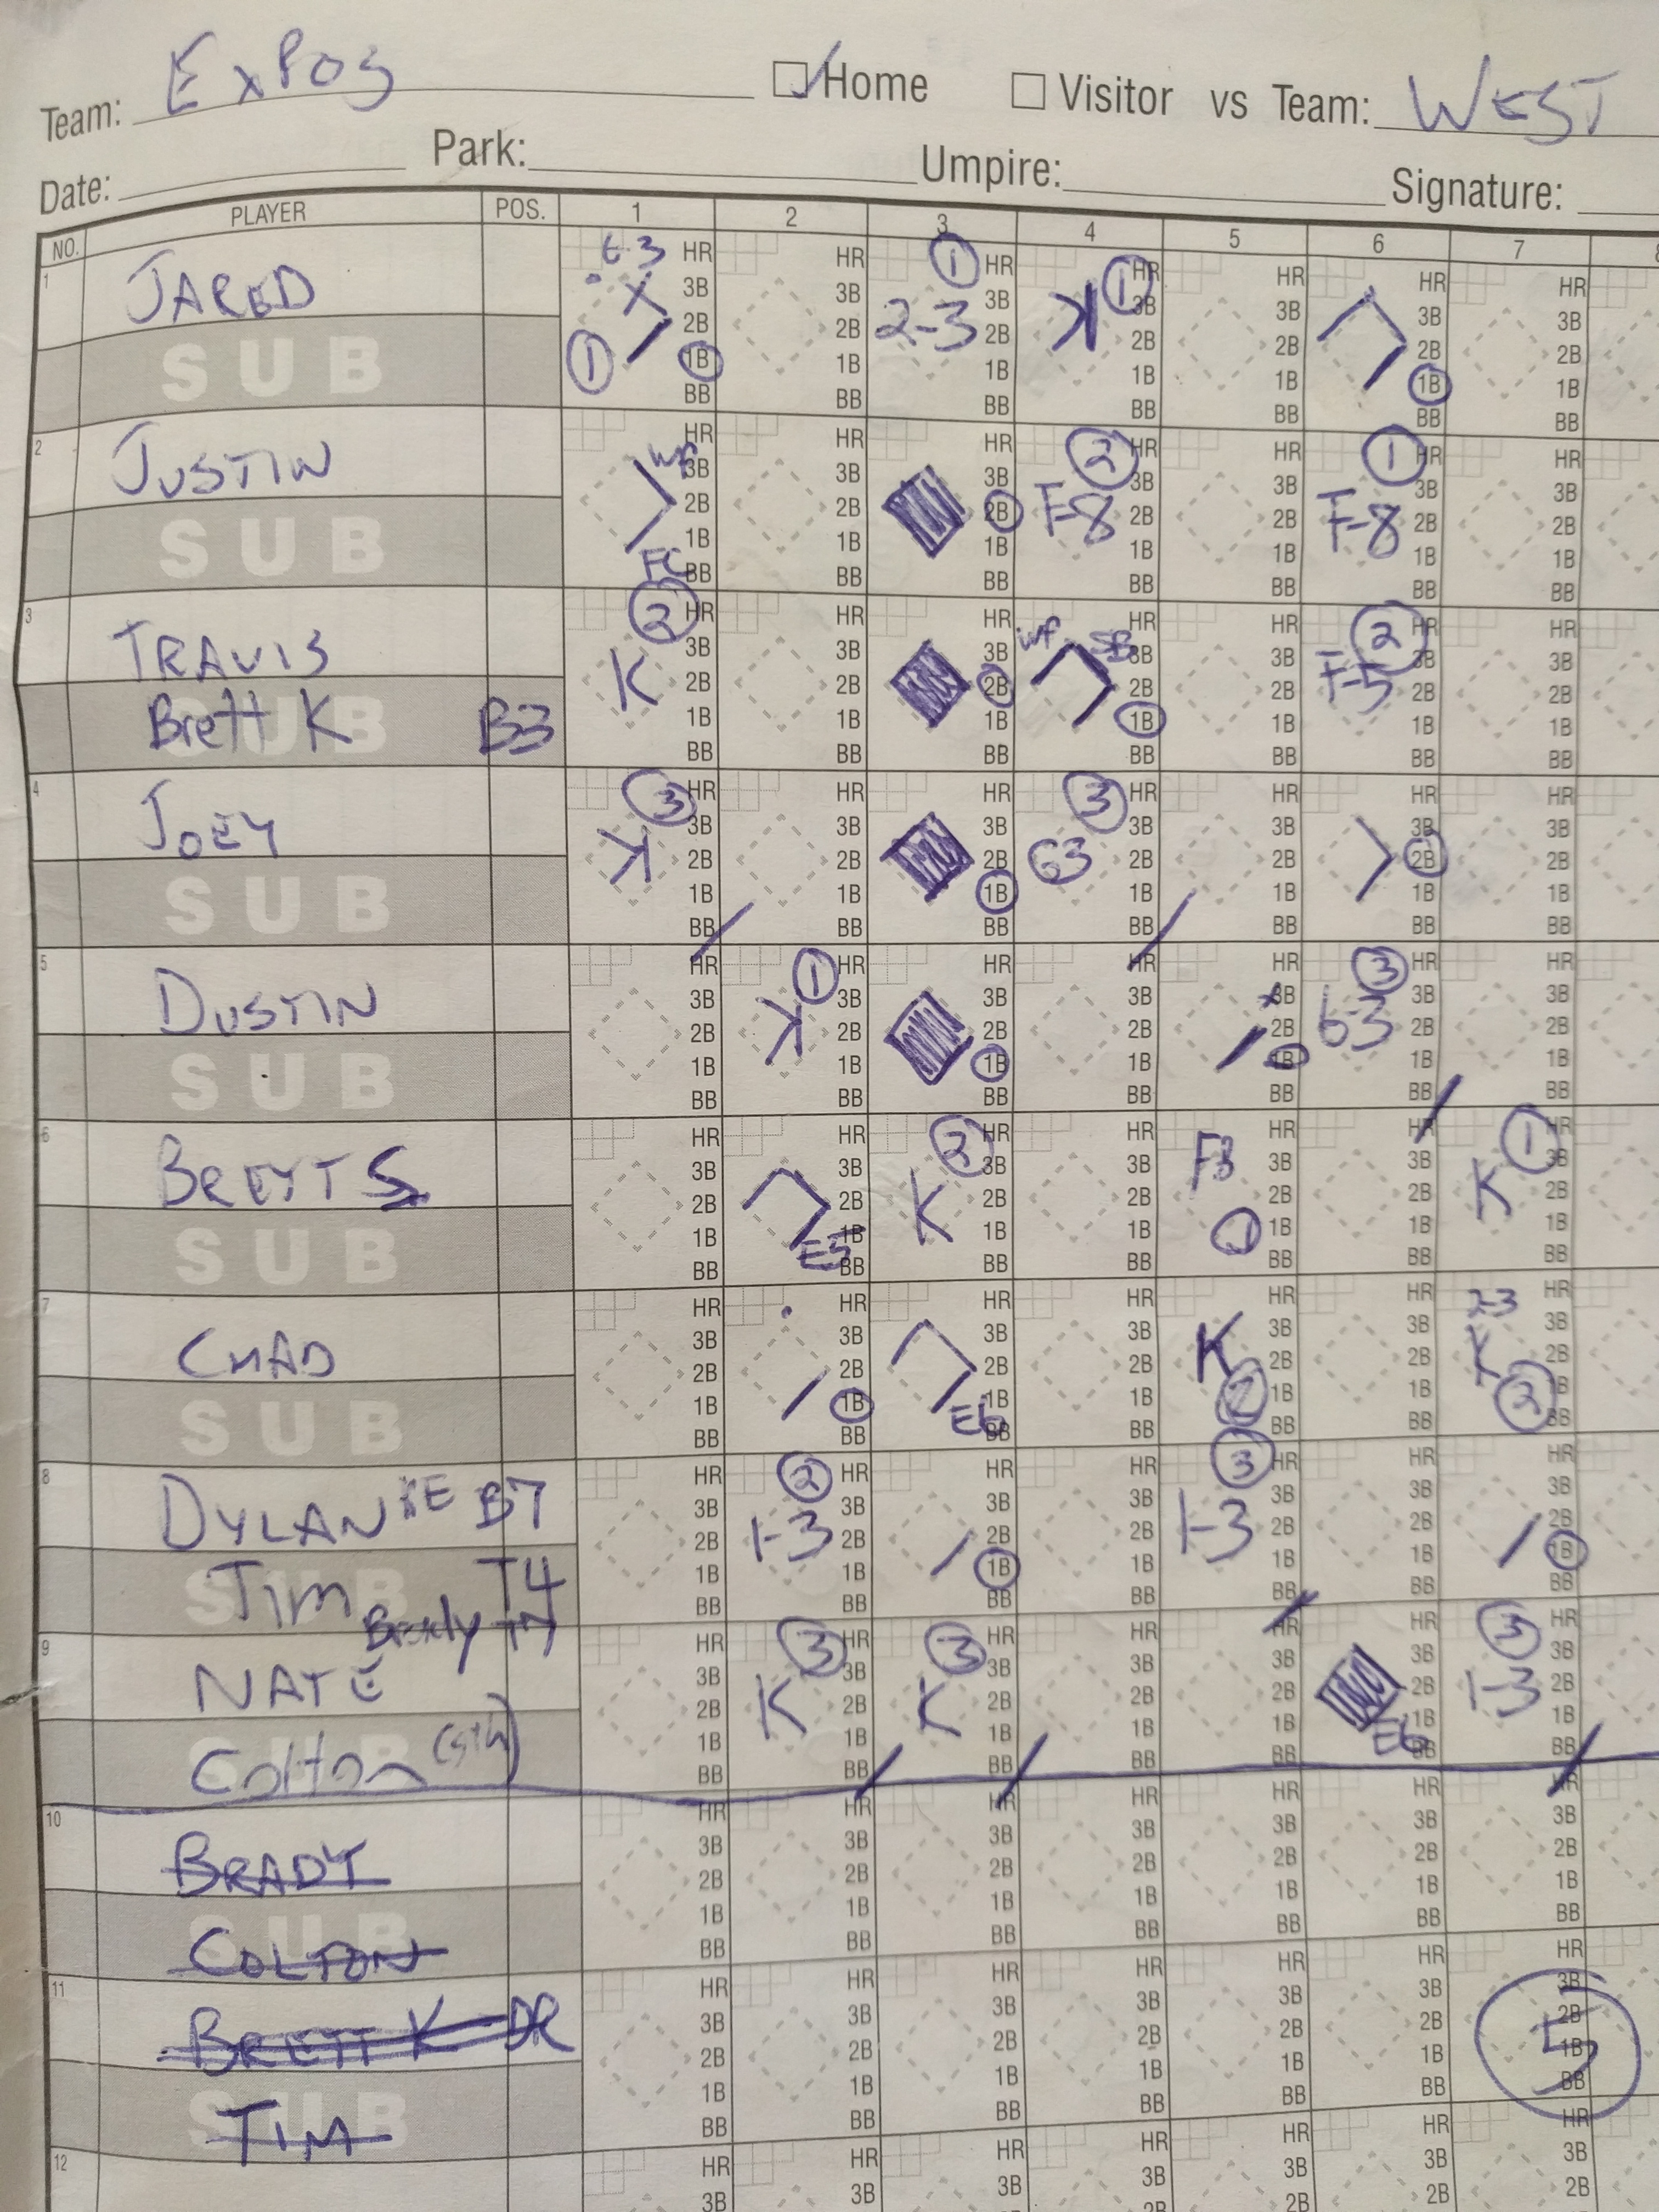 Team: Expos Home Visitor vs Team: WEST
Date: Park: Umpire: Signature:
NO. PLAYER POS. 1 2 3 4 5 6 7 8
1 JARED 6-3 1 1B 1 2-3 K 1 1B
SUB
2 JUSTIN WP FC 2B 2 F-8 1 F-8
SUB
3 TRAVIS 2 K 2B WP SB 1B 2 F-5
Brett K B3
SUB
4 JOEY 3 K 1B 3 63 2B
SUB
5 DUSTIN 1 K 1B 1B 3 6-3
SUB
6 BREYT S E5 2 K F3 1 1 K
SUB
7 CHAD 1B E6 K 2 2-3 K 2
SUB
8 DYLAN RE B7 2 1-3 1B 3 1-3 1B
Tim T4
SUB
Brady T7
9 NATE 3 K 3 K E6 3 1-3
Colton (5th)
SUB
10 BRADY
COLTON
SUB
11 BRETT K DR
5
TIM
SUB
12
HR
3B
2B
1B
BB